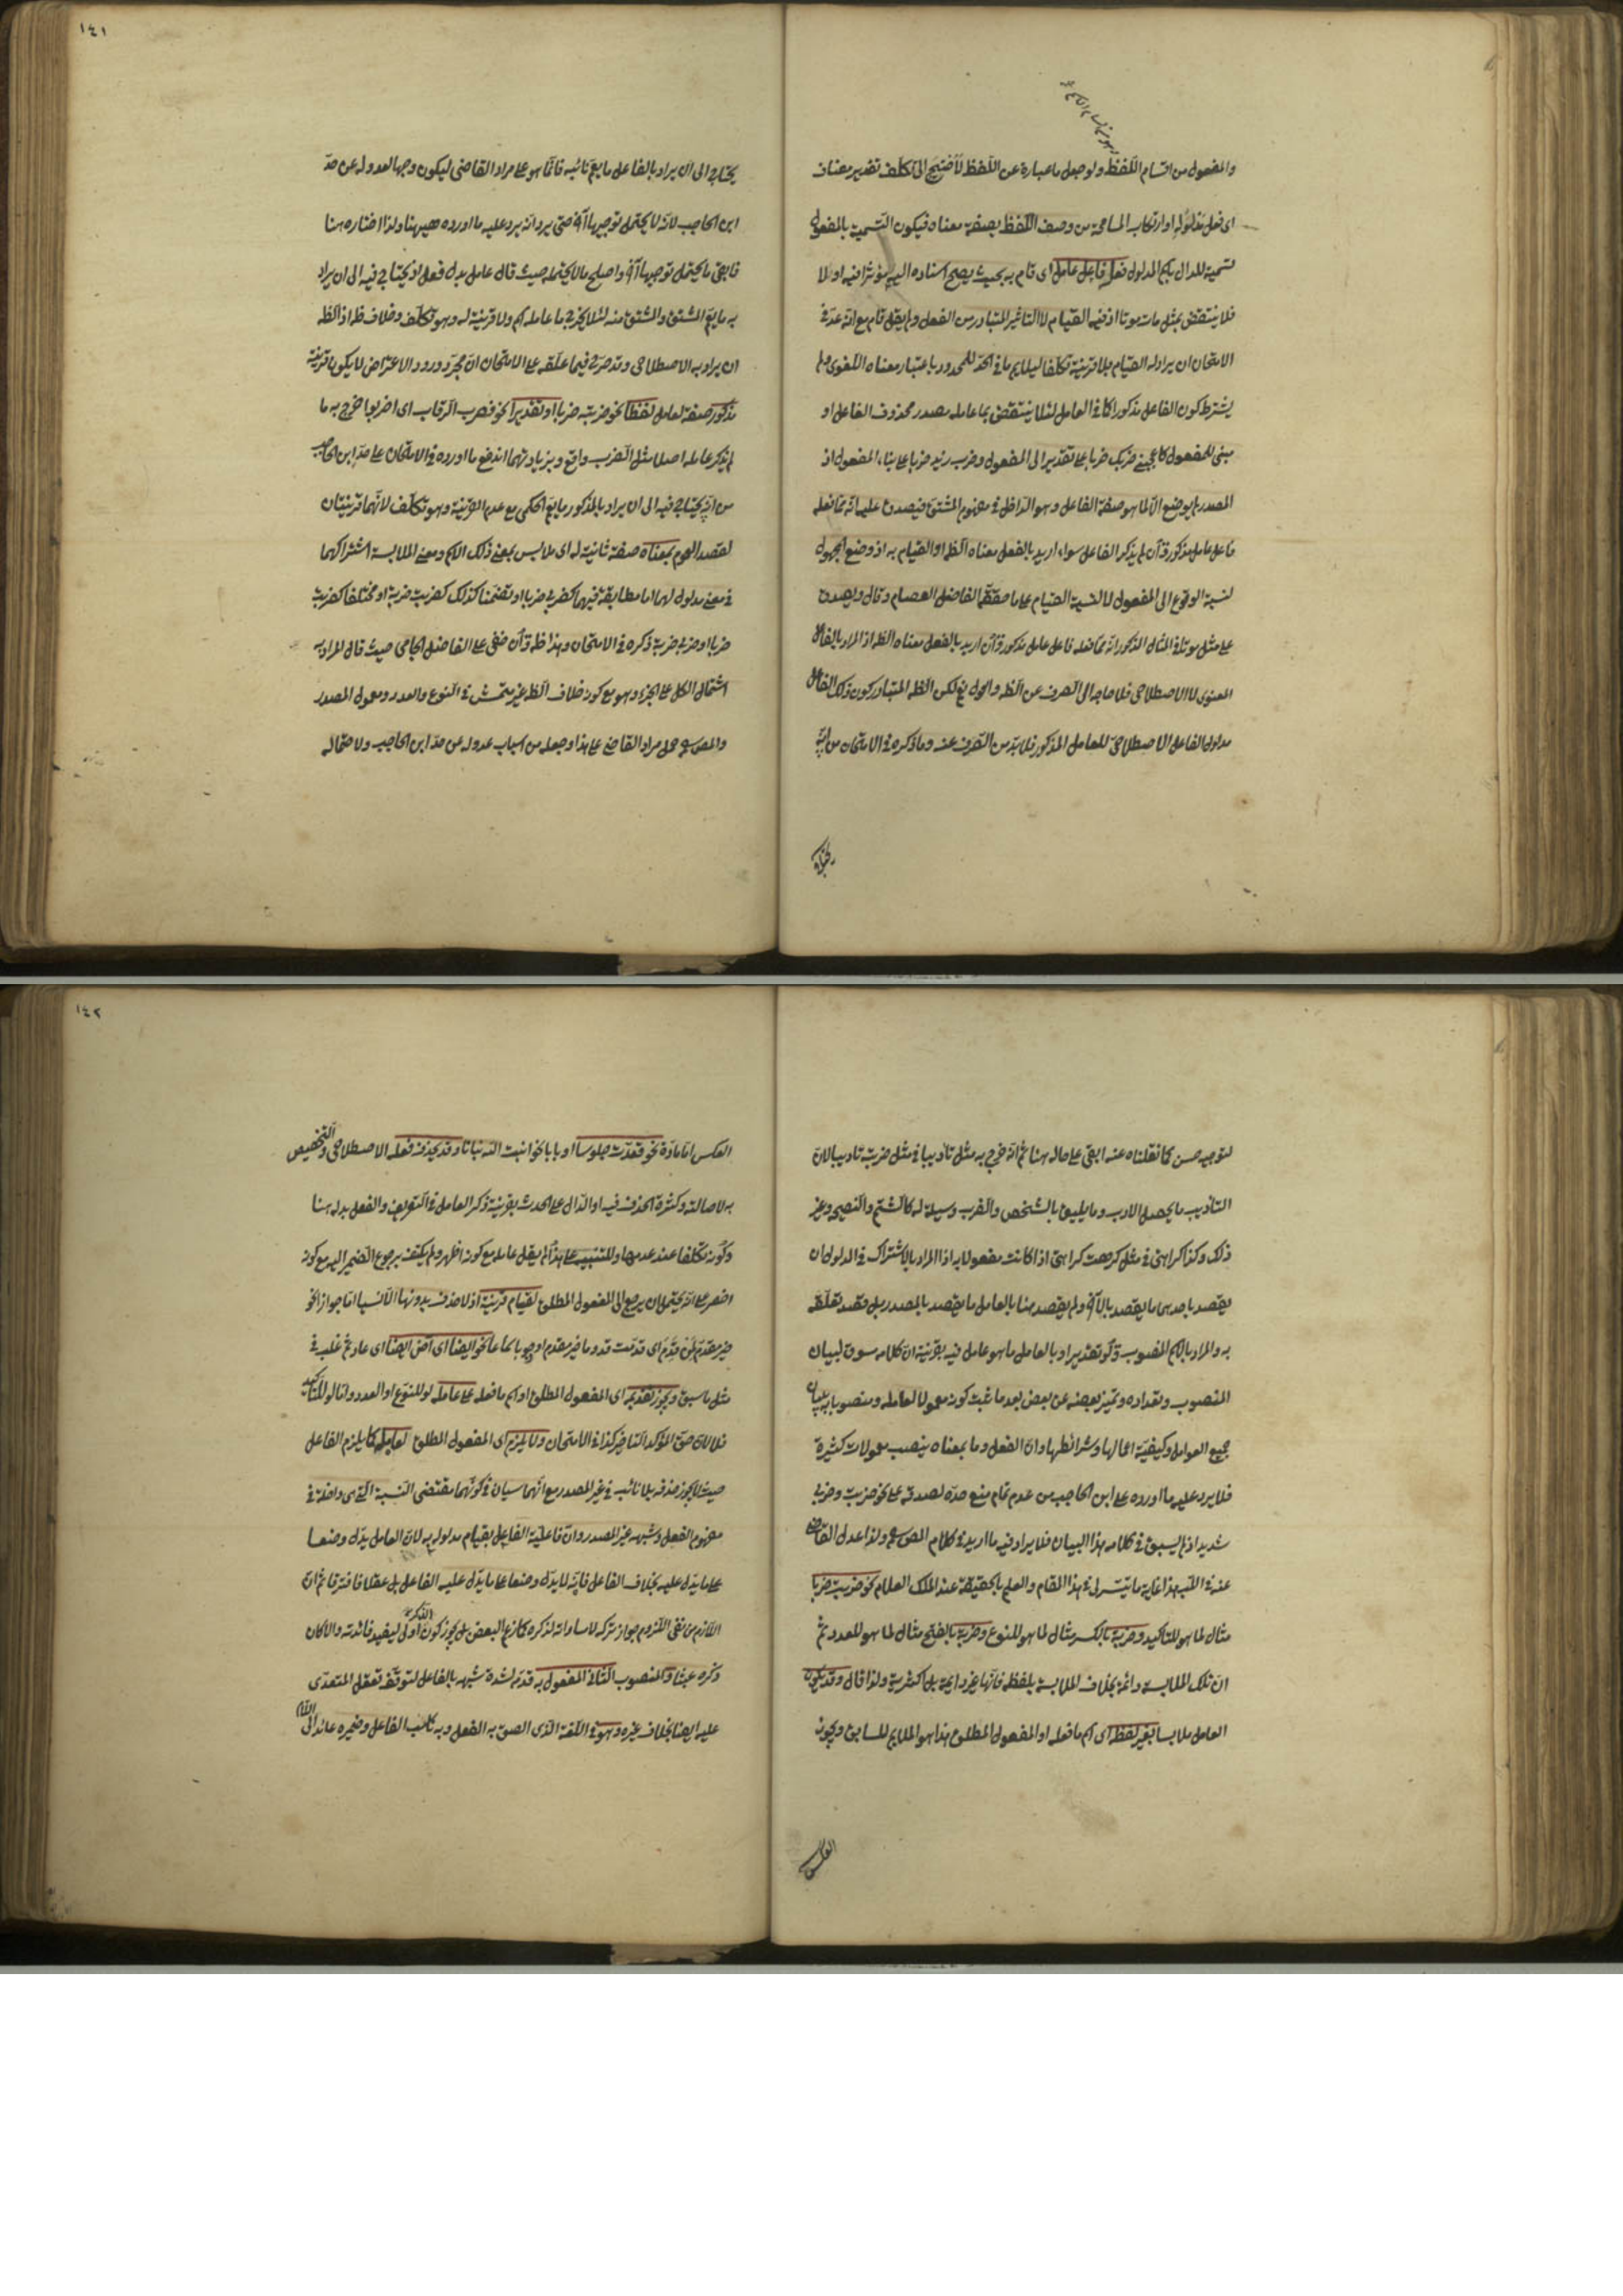 والمفعول من اقسام اللفظ ولو جعل ما عبارة عن اللفظ لاحتيج الى تكلف تقدير مضاف
اى فعل مدلوله او ارتكاب المسامحة من وصف اللفظ بصفة معناه فيكون التسمية بالمفعول
تسمية للدال باسم المدلول فعله فاعل عامل اى قام به بحيث يصح اسناده اليه مؤثرا فيه اولا
فلا ينتقض بمثل مات موتا اذ فيه القيام لا التأثير المتبادر من الفعل ولم يقل قام مع انه عد فى
الامتحان ان يراد له القيام بلا قرينة تكلفا ليلايم ما فى الحد للمحدود باعتبار معناه اللغوى ولم
يشترط كون الفاعل مذكورا كما فى العامل لئلا ينتقض بما عامله مصدر محذوف الفاعل او
مبنى للمفعول كاعجبنى ضربك ضربا على تقدير الى المفعول وضرب زيد ضربا على بناء المفعول اذ
المصدر لم يوضع الا لما هو صفة الفاعل وهو الداخل فى مفهوم المشتق فيصدق عليه انه مما فعله
فاعل عامل مذكور وان لم يذكر الفاعل سواء اريد بالفعل معناه الظ او القيام به اذ وضع المجهول
لنسبة الوقوع الى المفعول لا لنسبة القيام على ما حققه الفاضل العصام وقال ويصدق
على مثل موتا فى المثال المذكور انه مما فعله فاعل عامل مذكور وان اريد بالفعل معناه الظ اذ المراد بالفاعل
المعنوى لا الاصطلاحى فلا حاجة الى الصرف عن الظ والحول فيه لكن الظ المتبادر كون ذلك الفاعل
مدلول الفاعل الاصطلاحى للعامل المذكور فلا بد من الصرف عنه وما ذكره فى الامتحان من انه
يحتاج
١٤١
يحتاج الى ان يراد بالفاعل ما يعم نائبه فانما هو على مراد القاضى ليكون وجها لعدوله عن حد
ابن الحاجب لانه لا يحتمل توجيها آخر حتى يرد انه يرد عليه ما اورده ههنا ولذا اختاره هنا
فابقى ما يحتمل توجيها آخر واصلح ما لا يحتمله حيث قال عامل بدل فعل اذ يحتاج فيه الى ان يراد
به ما يعم المشتق والمشتق منه لئلا يخرج ما عامله اسم ولا قرينة له وهو تكلف وخلاف ظ اذ الظ
ان يراد به الاصطلاحى وقد صرح فيما علقه على الامتحان ان مجرد ورود الاعتراض لا يكون قرينة
مذكور صفة لعامل لفظا نحو ضربته ضربا او تقديرا نحو فضرب الرقاب اى اضربوا خرج به ما
لم يذكر عامله اصلا مثل الضرب واقع وبزيادتهما اندفع ما اورده فى الامتحان على حد ابن الحاجب
من انه يحتاج فيه الى ان يراد بالمذكور ما يعم الحكمى مع عدم القرينة وهو تكلف لانهما قرينتان
لقصد العموم بمعناه صفة ثانية له اى ملابس بمعنى ذلك الاسم ومعنى الملابسة اشتراكهما
فى معنى مدلول لهما اما مطابقة فيهما كضربى ضربا او تضمنا كذلك كضربت ضربة او مختلفا كضربت
ضربا او ضربى ضربة ذكره فى الامتحان وهذا ظ وان خفى على الفاضل الجامى حيث قال المراد به
اشتمال الكل على الجزء وهو مع كونه خلاف الظ غير متمش فى النوع والعدد ومعمول المصدر
والمص حمل مراد القاضى على هذا وجعله من اسباب عدوله عن حد ابن الحاجب ولاحتماله
لتوجيه حسن كما نقلناه عنه ابقى على حاله هنا ثم انه خرج به مثل تأديبا فى مثل ضربته تأديبا لان
التأديب ما يحصل الادب وما يليق بالشخص والضرب وسيلة له كالشتم والنصيحة وغير
ذلك وكذا كراهتى فى مثل كرهت كراهتى اذا كانت مفعولا به اذ المراد بالاشتراك فى المدلول ان
يقصد باحدهما ما يقصد بالآخر ولم يقصد هنا بالعامل ما يقصد بالمصدر بل قصد تعلقه
به والمراد بالاسم المنصوب ولو تقديرا وبالعامل ما هو عامل فيه بقرينة ان كلامه سوق لبيان
المنصوب وتعداده وتميز بعضه عن بعض بعد ما ثبت كونه معمولا لعامله ومنصوبا به ببيان
جميع العوامل وكيفية اعمالها وشرائطها وان الفعل وما بمعناه ينصب معمولات كثيرة
فلا يرد عليه ما اورده على ابن الحاجب من عدم تمام منع حده لصدقه على نحو ضربت وضربى
شديد اذ لم يسبق فى كلامه هذا البيان فلا يراد فيه ما اريد فى كلام المص ولذا عدل القاضى
عنه فى اللب هذا غاية ما تيسر لى فى هذا المقام والعلم بالحقيقة عند الملك العلام نحو ضربت ضربا
مثال لما هو للتأكيد وضربة بالكسر مثال لما هو للنوع وضربة بالفتح مثال لما هو للعدد ثم
ان تلك الملابسة دائمة بخلاف الملابسة بلفظه فانها غير دائمة بل اكثرية ولذا قال وقد يكون
العامل ملابسا بغير لفظه اى اسم ما فعله او المفعول المطلق هذا هو الملايم للسابق ويجوز
العكس
١٤٢
العكس اما مادة نحو قعدت جلوسا او بابا نحو انبت الله نباتا وقد يحذف فعله الاصطلاحى والتخصيص
به لاصالته وكثرة الحذف فيه او الدال على الحدث بقرينة ذكر العامل فى التعريف والفعل بدله هنا
وكونه تكلفا عند عدمها وللتنبيه على هذا لم يقل عامله مع كونه اظهر ولم يكتف برجوع الضمير اليه مع كونه
اخصر على انه يحتمل ان يرجع الى المفعول المطلق لقيام قرينة اذ لا حذف بدونها الا نسيا اما جوازا نحو
خير مقدم لمن قدم اى قدمت قدوما خير مقدم او وجوبا سماعا نحو ايضا اى آض ايضا اى عاد ثم غلب فى
مثل ما سبق ويجوز تقديمه اى المفعول المطلق او اسم ما فعله على عامله لو للنوع او العدد واما لو للتأكيد
فلا لان حق المؤكد التأخير كذا فى الامتحان ولا يلزم اى المفعول المطلق لعامله كما يلزم الفاعل
حيث لا يجوز حذفه بلا نائب فى غير المصدر مع انهما سيان فى كونهما مقتضى النسبة التى هى داخلة فى
مفهوم الفعل وشبهه غير المصدر وان فاعلية الفاعل بقيام مدلوله به لان العامل يدل وضعا
على ما يدل عليه بخلاف الفاعل فانه لا يدل وضعا على ما يدل عليه الفاعل بل عقلا فافترقا ثم ان
اللازم من نفى اللزوم جواز تركه لا مساواته لذكره كما زعم البعض بل يجوز كون الذكر اولى ليفيد فائدته والا كان
ذكره عبثا والمنصوب الثانى المفعول به قدمه لشدة شبهه بالفاعل لتوقف تعقل المتعدى
عليه ايضا بخلاف غيره وهو فى اللغة الذى الصق به الفعل وبه نائب الفاعل وضميره عائد الى اللام